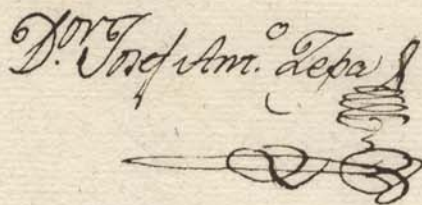 D.or Josef Ant.o Zepa